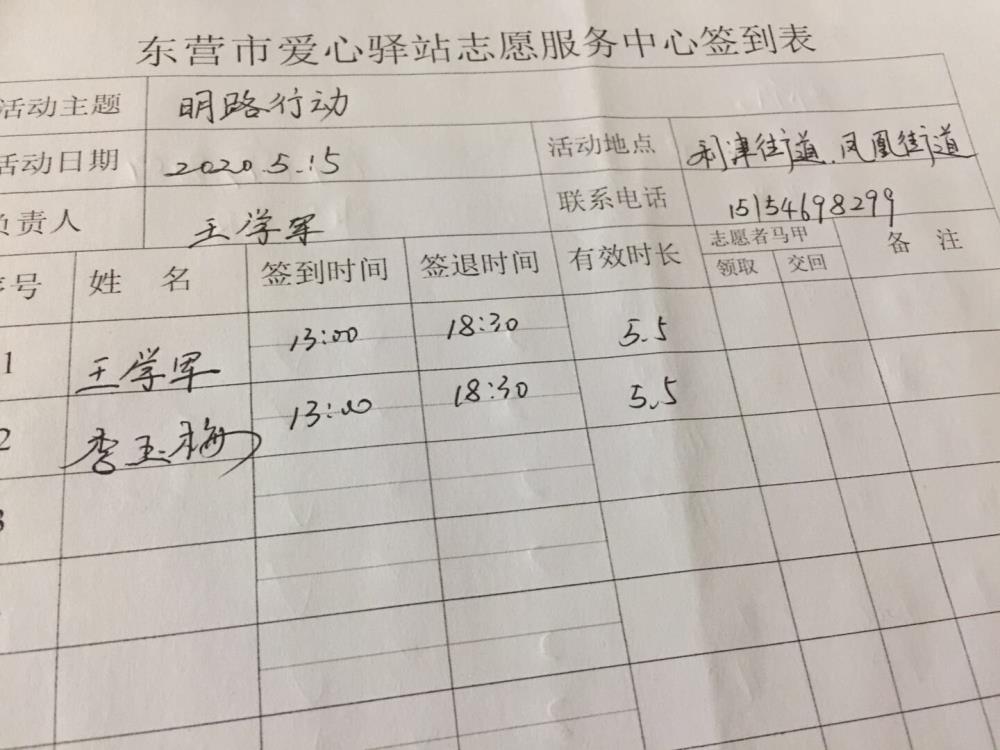 东营市爱心驿站志愿服务中心签到表
活动主题 明路行动
活动日期 2020.5.15 活动地点 利津街道、凤凰街道
负责人 王学军 联系电话 15154698299
序号 姓 名 签到时间 签退时间 有效时长 志愿者马甲 备 注
领取 交回
1 王学军 13:00 18:30 5.5
2 李玉梅 13:00 18:30 5.5
3